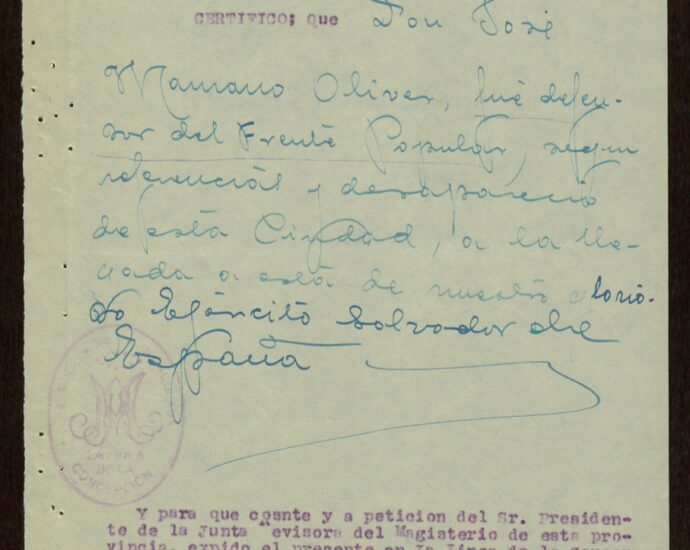 CERTIFICO; que Don José
Mariano Oliver, fué defen-
sor del Frente Popular, segun
referencias y desapareció
de esta Ciudad, a la lle-
gada a esta de nuestro glorio-
so Ejército Salvador de
España
LA LINEA
DE LA
CONCEPCION
Y para que cosnte y a peticion del Sr. Presiden-
te de la Junta evisora del Magisterio de esta pro-
vincia, expido el presente en La Linea de la